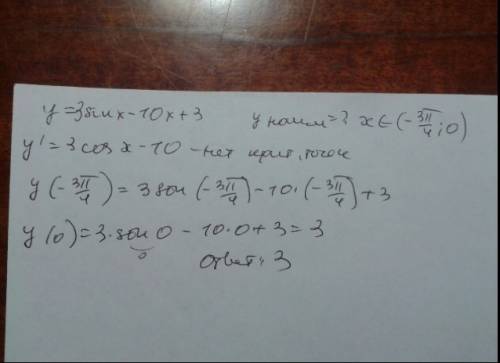 y = 3 sin x - 10x + 3 y наим = ? x ∈ (-3π/4; 0)
y' = 3 cos x - 10 - нет крит. точек
y(-3π/4) = 3 sin (-3π/4) - 10 · (-3π/4) + 3
y(0) = 3 · sin 0 - 10 · 0 + 3 = 3
0
Ответ: 3